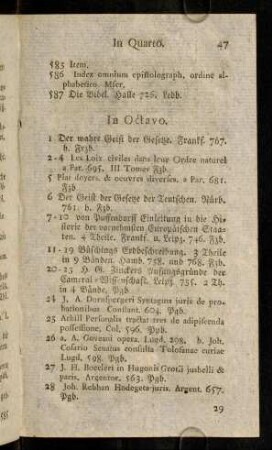 In Quarto. 47
585 Item.
586 Index omnium epistolograph, ordine al-
phabetico. Mscr.
587 Die Bibel. Halle 726. Ledb.
In Octavo.
1 Der wahre Geist der Gesetze. Frankf. 767.
h. Frzb.
2-4 Les Loix civiles dans leur Ordre naturel
a Par. 695. III Tomes Fzb.
5 oeuvres diverses. a Par. 681.
Fzb
6 Der Geist der Gesetze der Teutschen. Nürb.
761. h. Fzb.
7-10 von Puffendorff Einleitung in die Hi-
storie der vornehmsten Europäischen Staa-
ten. 4 Theile. Frankf. u. Leipz. 746. Fzb.
11-19 Büschings Erdbeschreibung. 3 Theile
in 9 Bänden. Hamb. 758. und 768. Fzb.
20-23 H. G. Zinckens Anfangsgründe der
Cameral-Wissenschaft. Leipz. 755. 2 Th.
in 4 Bände. Pgb.
24 J. A. Dornspergeri Syntagma juris de pro-
bationibus Constant. 604. Pgb.
25 Achill Personalis tractat tres de adipiscenda
possessione, Col. 596. Pgb.
26 a. A. Goveani opera. Lugd. 298. b. Joh.
Coserio Senatus consulta Tolosanae curiae
Lugd. 598. Pgb.
27 J. H. Boecleri in Hugonis Grotii jusbelli &
pacis, Argentor. 563. Pgb.
28 Joh. Rebhan Hodegeta juris. Argent. 657.
Pgb.
29